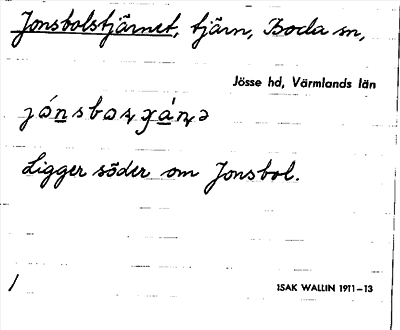 Jonsbolstjärnet, tjärn, Boda sn,
Jösse hd, Värmlands län
Ligger söder om Jonsbol.
1
ISAK WALLIN 1911–13